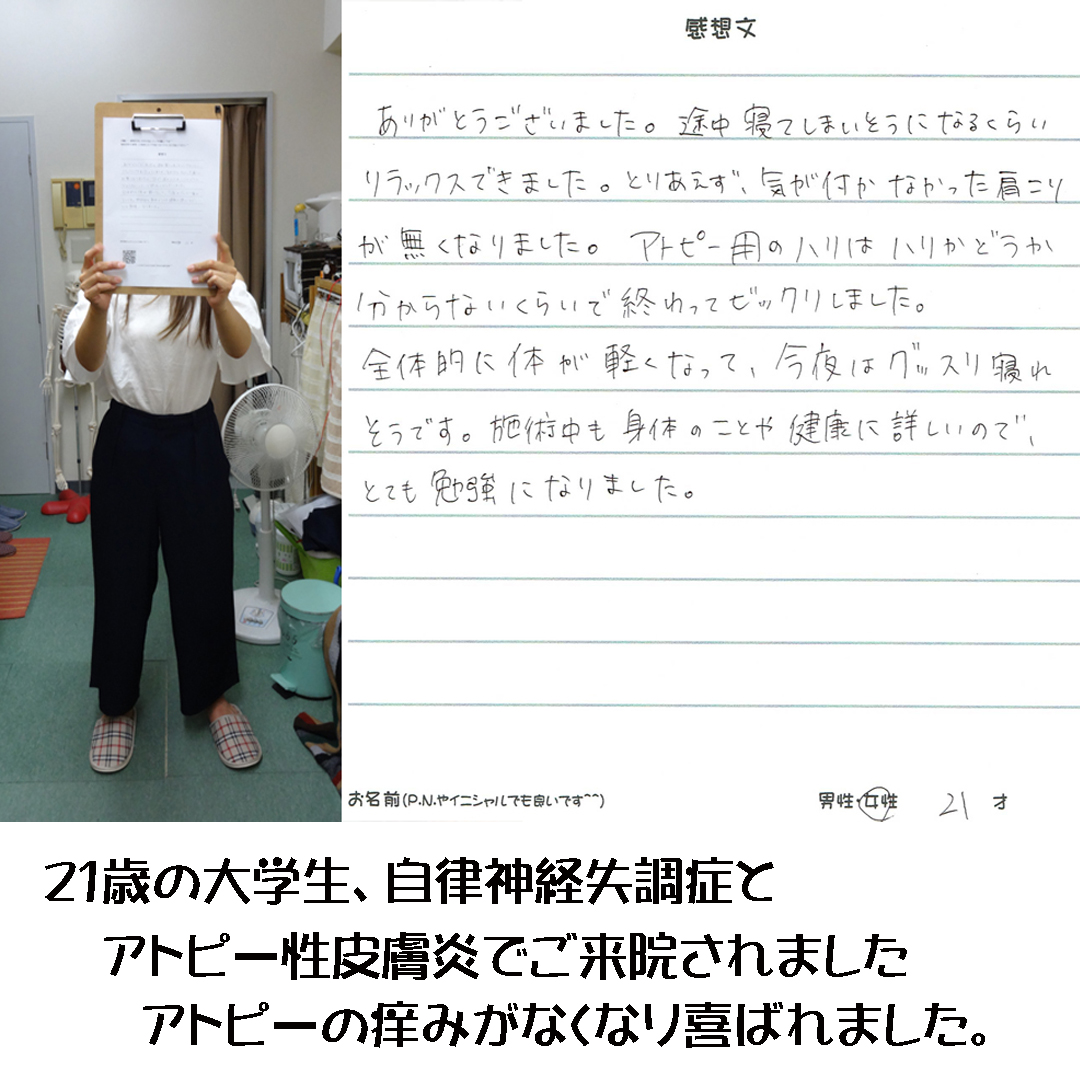 感想文
ありがとうございました。途中寝てしまいそうになるくらい
リラックスできました。とりあえず、気が付かなかった肩こり
が無くなりました。アトピー用のハリはハリかどうか
分からないくらいで終わってビックリしました。
全体的に体が軽くなって、今夜はグッスリ寝れ
そうです。施術中も身体のことや健康に詳しいので、
とても勉強になりました。
お名前(P.N.やイニシャルでも良いです^^)
男性・女性 21 才
21歳の大学生、自律神経失調症と
アトピー性皮膚炎でご来院されました
アトピーの痒みがなくなり喜ばれました。